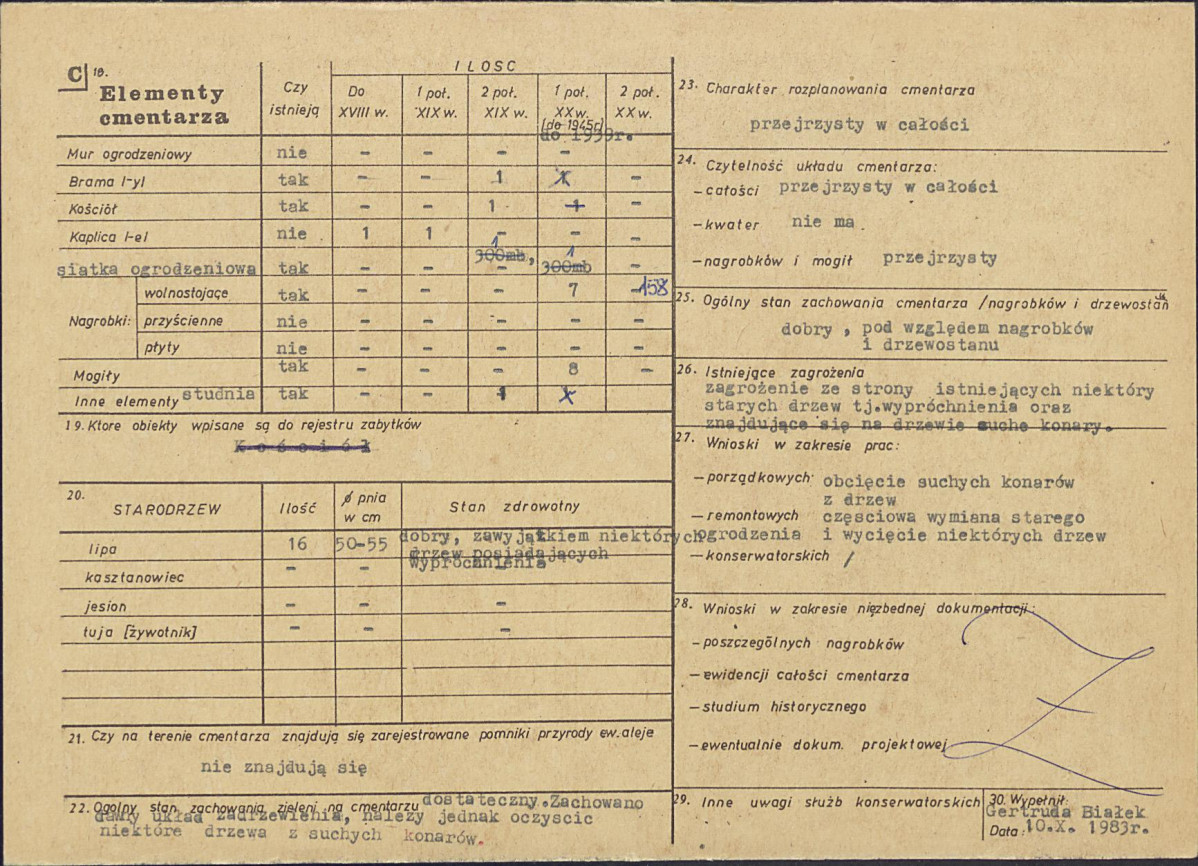 C 18. Elementy cmentarza
Czy istnieją
ILOSC
Do XVIII w.
1 poł. XIX w.
2 poł. XIX w.
1 poł. XX w. (do 1945r) do 1939r.
2 poł. XX w.
Mur ogrodzeniowy nie - - - -
Brama /-y/ tak - - 1 X -
Kościół tak - - 1 1 -
Kaplica /-e/ nie 1 1 - - -
siatka ogrodzeniowa tak - - 300mb, 1 300mb 1 -
Nagrobki:
wolnostojące tak - - - 7 -158
przyścienne nie - - - - -
płyty nie - - - - -
Mogiły tak - - - 8 -
Inne elementy studnia tak - - 1 X
19. Ktore obiekty wpisane są do rejestru zabytków
K o ś c i ó ł
20.
STARODRZEW Ilość ∅ pnia w cm Stan zdrowotny
lipa 16 50-55 dobry, zawyjątkiem niektórych
drzew posiadających
wypróchnienia
kasztanowiec - - -
jesion - - -
tuja [żywotnik] - - -
21. Czy na terenie cmentarza znajdują się zarejestrowane pomniki przyrody ew. aleje
nie znajdują się
22. Ogolny stan zachowania zieleni na cmentarzu dostateczny.Zachowano
dawny układ zadrzewienia, należy jednak oczyscic
niektóre drzewa z suchych konarów.
23. Charakter rozplanowania cmentarza
przejrzysty w całości
24. Czytelność układu cmentarza:
- całości przejrzysty w całości
- kwater nie ma
- nagrobków i mogił przejrzysty
25. Ogólny stan zachowania cmentarza /nagrobków i drzewostan
dobry , pod względem nagrobków
i drzewostanu
26. Istniejące zagrożenia
zagrożenie ze strony istniejących niektóry
starych drzew tj.wypróchnienia oraz
znajdujące się na drzewie suche konary.
27. Wnioski w zakresie prac:
- porządkowych: obcięcie suchych konarów
z drzew
- remontowych częsciowa wymiana starego
ogrodzenia i wycięcie niektórych drzew
- konserwatorskich /
28. Wnioski w zakresie niezbednej dokumentacji:
- poszczególnych nagrobków
- ewidencji całości cmentarza
- studium historycznego
- ewentualnie dokum. projektowej
29. Inne uwagi służb konserwatorskich
30. Wypełnił:
Gertruda Białek
Data: 10.X. 1983r.